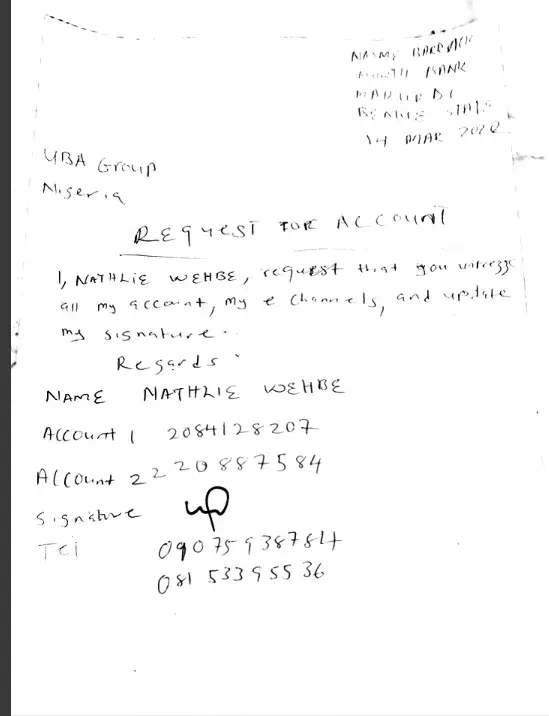 NAME BARRACK
NORTH BANK
MAKURDI
BENUE STATE
14 MAR 2022
UBA Group
Nigeria
REQUEST FOR ACCOUNT
I, NATHLIE WEHBE, request that you unfreeze
all my account, my e channels, and update
my signature.
Regards
NAME NATHLIE WEHBE
Account 1 2084128207
Account 2 2220887584
Signature
Tel 09075938784
08153395536